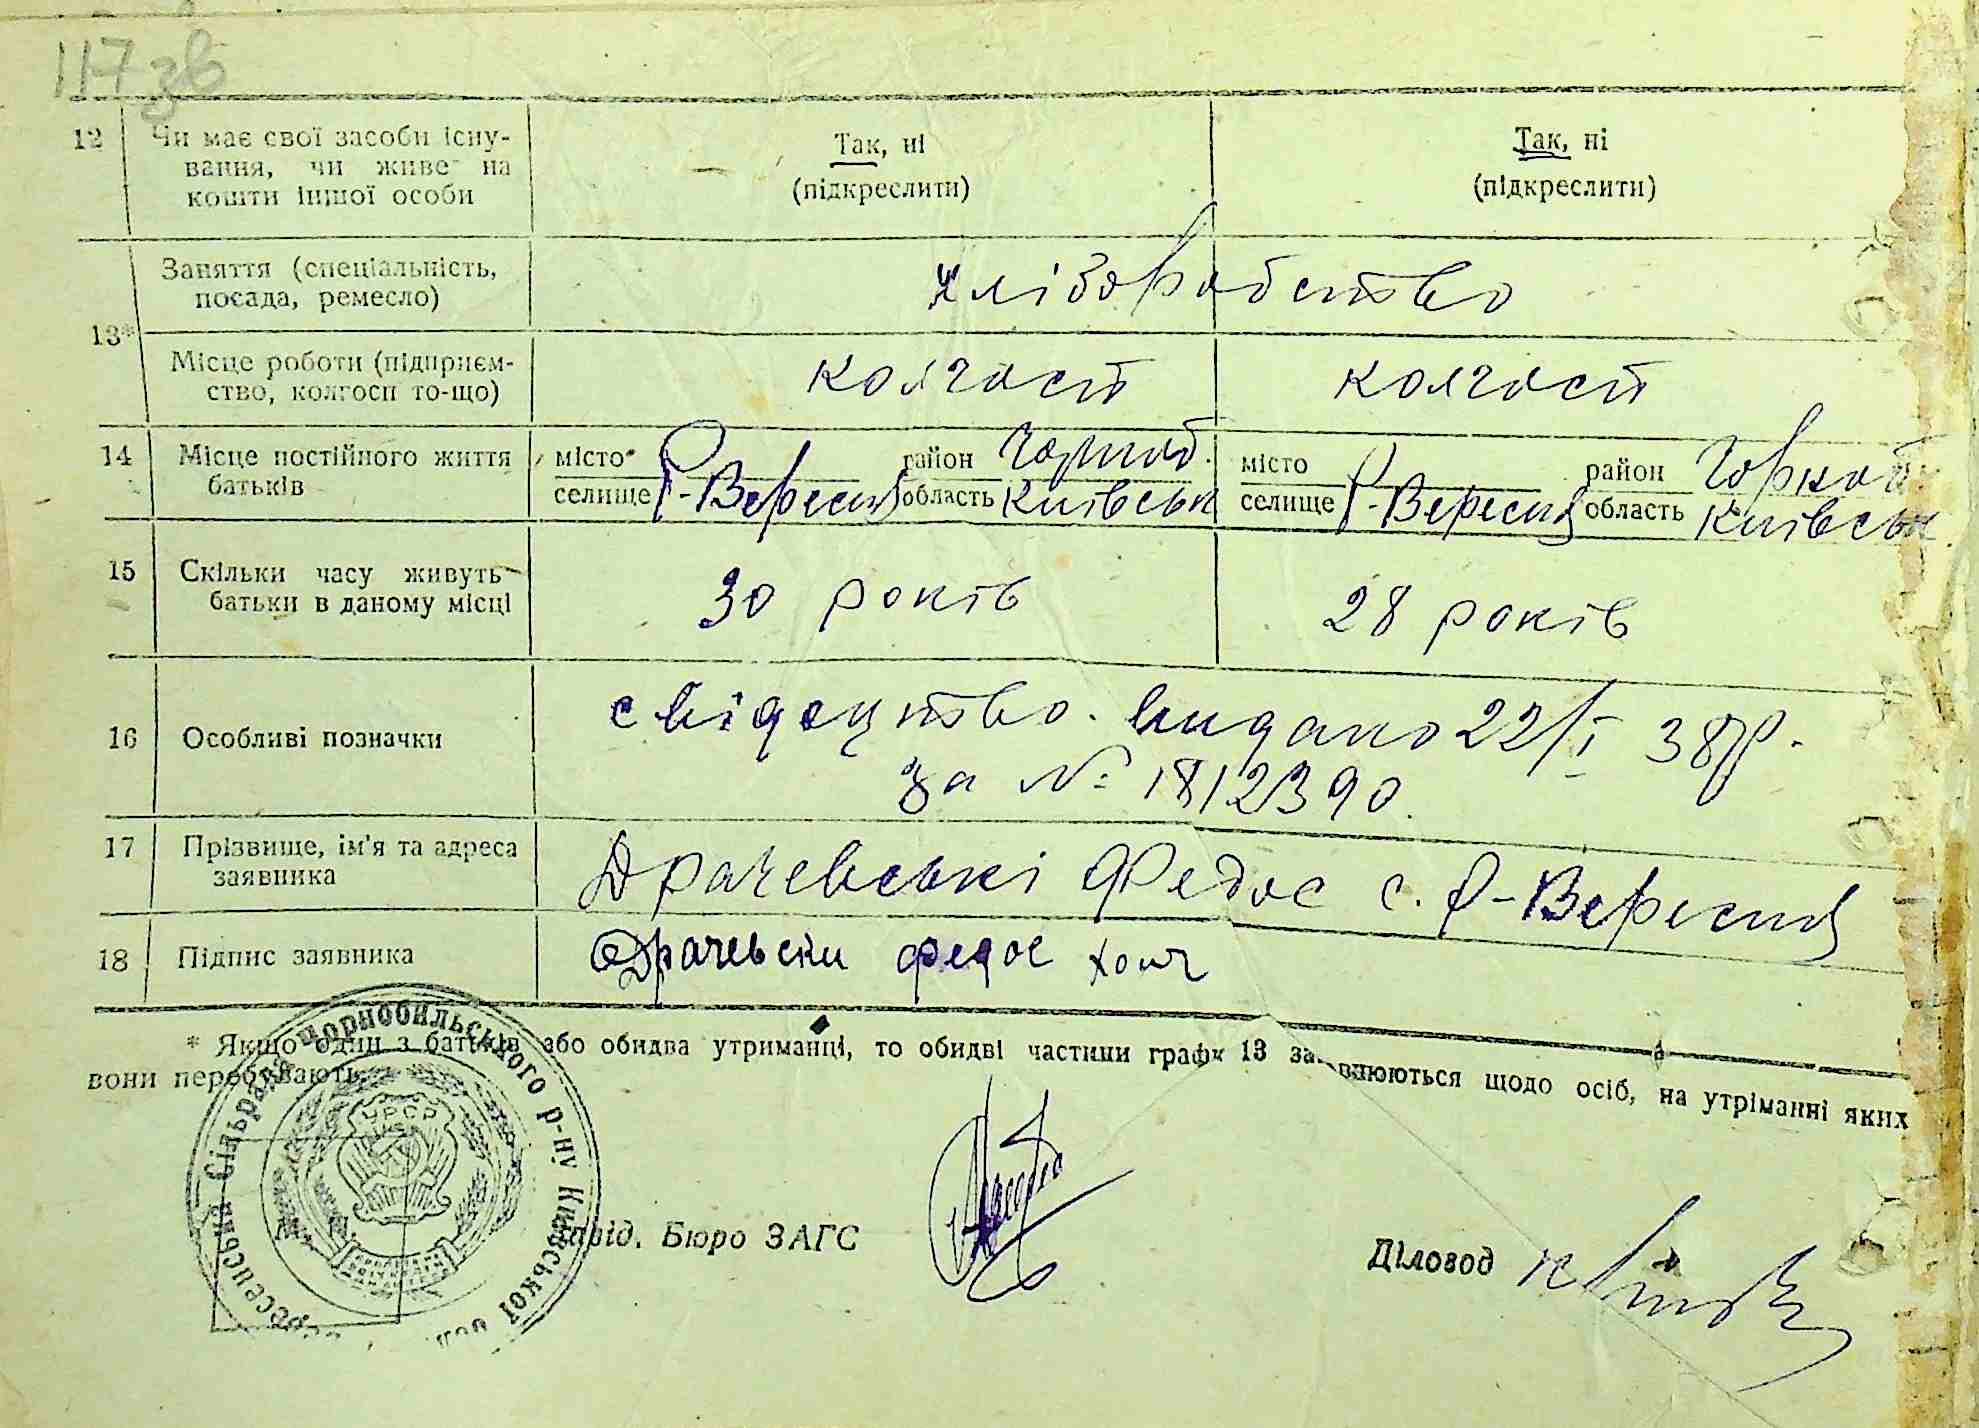 117 зв
12 Чи має свої засоби існу-
вання, чи живе на
кошти іншої особи
Так, ні
(підкреслити)
Так, ні
(підкреслити)
13*
Заняття (спеціальність,
посада, ремесло)
хліборобство
Місце роботи (підприєм-
ство, колгосп то-що)
колгосп
колгосп
14 Місце постійного життя
батьків
місто
селище Р-Вересня
район Чорноб.
область Київськ
місто
селище Р-Вересня
район Чорноб
область Київськ
15 Скільки часу живуть
батьки в даному місці
30 років
28 років
16 Особливі позначки
свідоцтво видано 22/I 38 р.
за № 1812390.
17 Прізвище, ім'я та адреса
заявника
Драчевські Федос с. Р-Вересня
18 Підпис заявника
Драчевски федос
* Якщо один з батьків або обидва утриманці, то обидві частини графи 13 заповнюються щодо осіб, на утріманні яких
вони перебувають.
Сільрада Чорнобильського р-ну Київської
УРСР
Завід. Бюро ЗАГС
Діловод